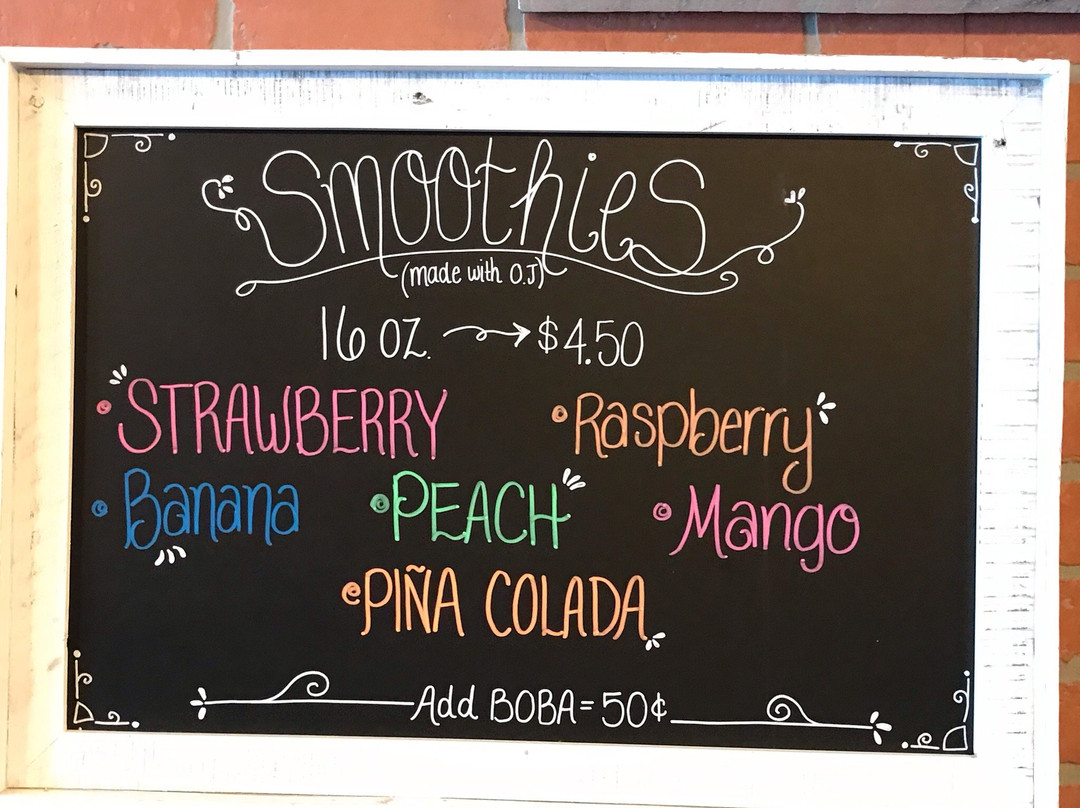 Smoothies
(made with O.J)
16 OZ. → $4.50
• STRAWBERRY • Raspberry
• Banana • PEACH • Mango
• PIÑA COLADA
Add BOBA = 50¢